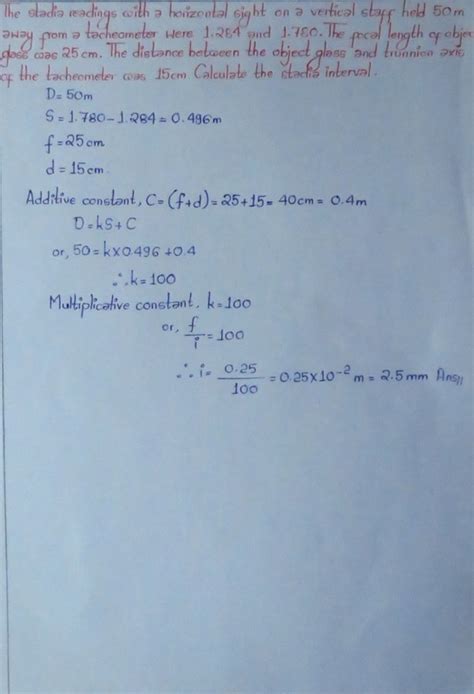 The stadia readings with a horizontal sight on a vertical staff held 50m
away from a tacheometer were 1.284 and 1.780. The focal length of object
glass was 25cm. The distance between the object glass and trunnion axis
of the tacheometer was 15cm Calculate the stadia interval.
D= 50m
S = 1.780-1.284 = 0.496m
f = 25cm
d = 15cm.
Additive constant, C = (f+d) = 25+15 = 40cm = 0.4m
D = kS + C
or, 50 = k×0.496 + 0.4
∴ k = 100
Multiplicative constant, k=100
or, f/i = 100
∴ i = 0.25/100 = 0.25×10⁻² m = 2.5 mm Ans//